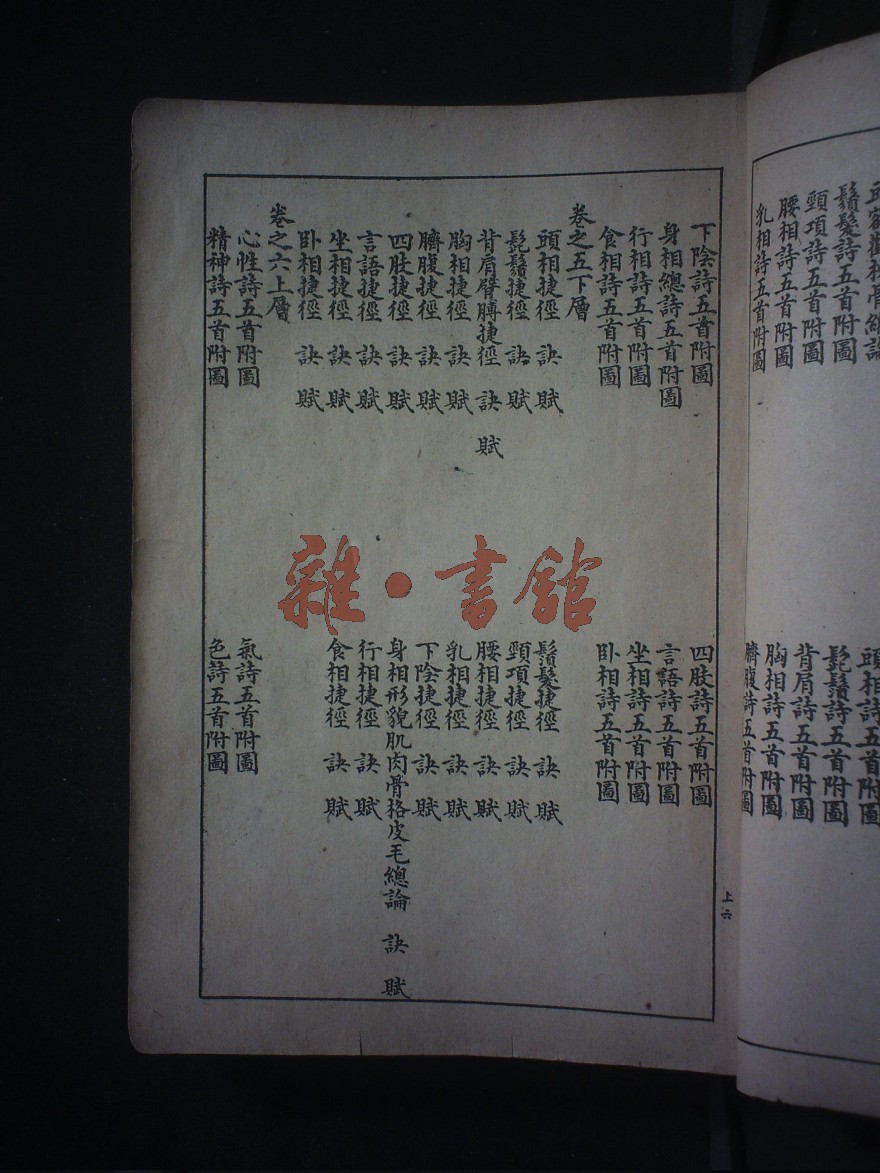 頭相詩五首附圖
鬚髮詩五首附圖
髭鬚詩五首附圖
頸項詩五首附圖
背肩詩五首附圖
腰相詩五首附圖
胸相詩五首附圖
乳相詩五首附圖
臍腹詩五首附圖
下陰詩五首附圖
四肢詩五首附圖
身相總詩五首附圖
言語詩五首附圖
行相詩五首附圖
坐相詩五首附圖
食相詩五首附圖
卧相詩五首附圖
卷之五下層
頭相捷徑 訣 賦
鬚髮捷徑 訣 賦
髭鬚捷徑 訣 賦
頸項捷徑 訣 賦
背肩臂膊捷徑 訣 賦
腰相捷徑 訣 賦
胸相捷徑 訣 賦
乳相捷徑 訣 賦
臍腹捷徑 訣 賦
下陰捷徑 訣 賦
四肢捷徑 訣 賦
身相形貌肌肉骨格皮毛總論 訣 賦
言語捷徑 訣 賦
行相捷徑 訣 賦
坐相捷徑 訣 賦
食相捷徑 訣 賦
卧相捷徑 訣 賦
卷之六上層
心性詩五首附圖
氣詩五首附圖
精神詩五首附圖
色詩五首附圖
上六
雜·書館